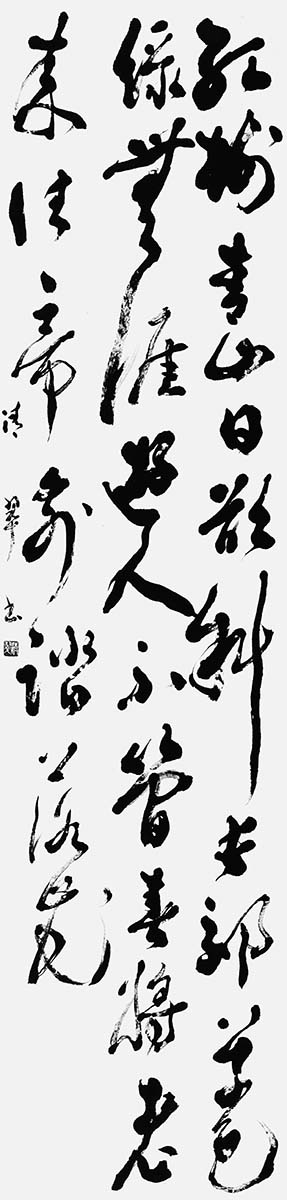 紅樹青山日欲斜長郊草色
綠無涯遊人不管春將老
來往亭前踏落花
清翠书